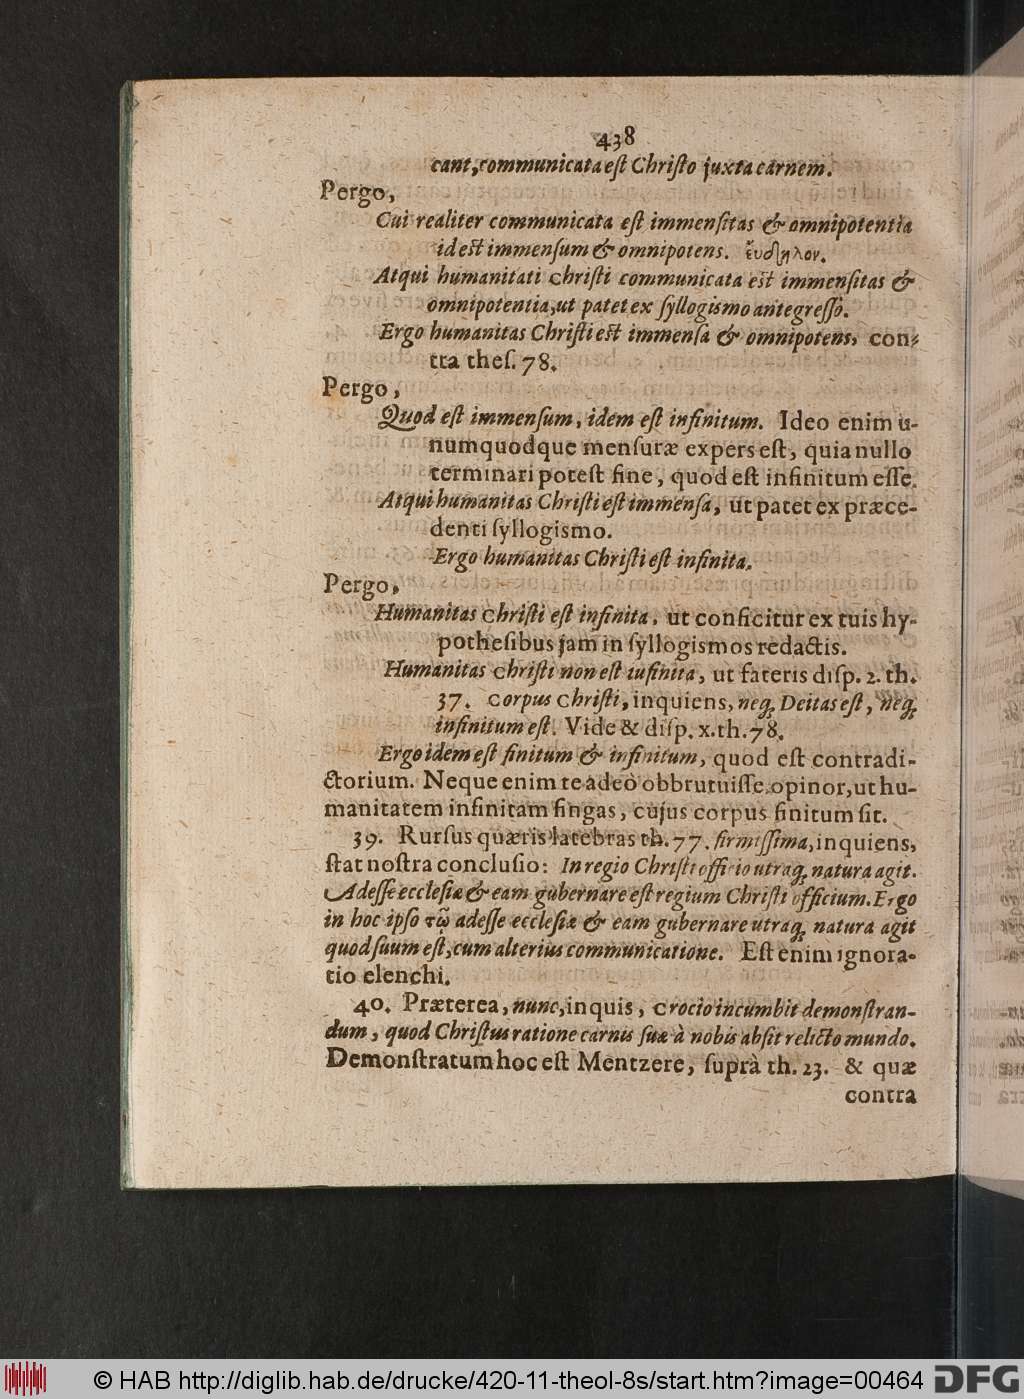 438
cant, communicata eſt Chriſto juxta carnem.
Pergo,
Cui realiter communicata eſt immenſitas & omnipotentia
id eſt immenſum & omnipotens. εὔδηλον.
Atqui humanitati Chriſti communicata eſt immenſitas &
omnipotentia, ut patet ex ſyllogismo antegreſſo.
Ergo humanitas Chriſti eſt immenſa & omnipotens, con-
tra theſ. 78.
Pergo,
Quod eſt immenſum, idem eſt infinitum. Ideo enim u-
numquodque menſuræ expers eſt, quia nullo
terminari poteſt fine, quod eſt infinitum eſſe.
Atqui humanitas Chriſti eſt immenſa, ut patet ex præce-
denti ſyllogismo.
Ergo humanitas Chriſti eſt infinita.
Pergo,
Humanitas Chriſti eſt infinita, ut conficitur ex tuis hy-
potheſibus jam in ſyllogismos redactis.
Humanitas Chriſti non eſt iufinita, ut fateris diſp. 2. th.
37. Corpus Chriſti, inquiens, neq; Deitas eſt, neq;
infinitum eſt. Vide & diſp. x. th. 78.
Ergo idem eſt finitum & infinitum, quod eſt contradi-
ctorium. Neque enim te adeò obbrutuiſſe opinor, ut hu-
manitatem infinitam fingas, cujus corpus finitum ſit.
39. Rurſus quæris latebras th. 77. firmiſſima, inquiens,
ſtat noſtra concluſio: In regio Chriſti officio utraq; natura agit.
Adeſſe eccleſiæ & eam gubernare eſt regium Chriſti officium. Ergo
in hoc ipſo τῷ adeſſe eccleſiæ & eam gubernare utraq; natura agit
quod ſuum eſt, cum alterius communicatione. Eſt enim ignora-
tio elenchi.
40. Præterea, nunc, inquis, Crocio incumbit demonſtran-
dum, quod Chriſtus ratione carnis ſuæ à nobis abſit relicto mundo.
Demonſtratum hoc eſt Mentzere, ſuprà th. 23. & quæ
contra
© HAB http://diglib.hab.de/drucke/420-11-theol-8s/start.htm?image=00464
DFG